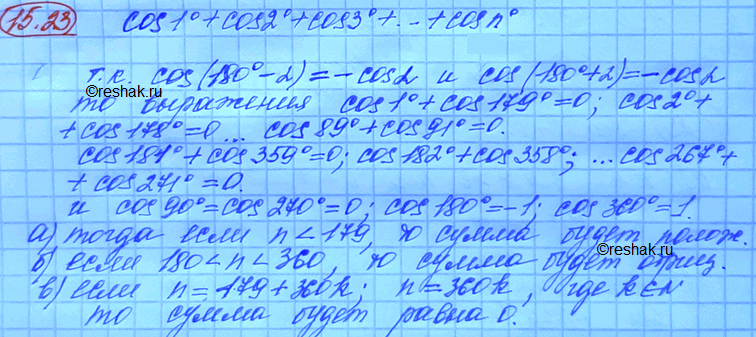 15.23 cos1° + cos2° + cos3° + ... + cosn°
т.к. cos(180°-α) = -cosα и cos(180°+α) = -cosα
©reshak.ru
то выражения cos1° + cos179° = 0; cos2° +
+ cos178° = 0 ... cos89° + cos91° = 0.
cos181° + cos359° = 0; cos182° + cos358°; ... cos267° +
+ cos271° = 0.
и cos90° = cos270° = 0; cos180° = -1; cos360° = 1.
©reshak.ru
а) тогда если n < 179, то сумма будет полож.
б) если 180 < n < 360, то сумма будет отриц.
в) если n = 179 + 360k; n = 360k, где k∈N
то сумма будет равна 0.